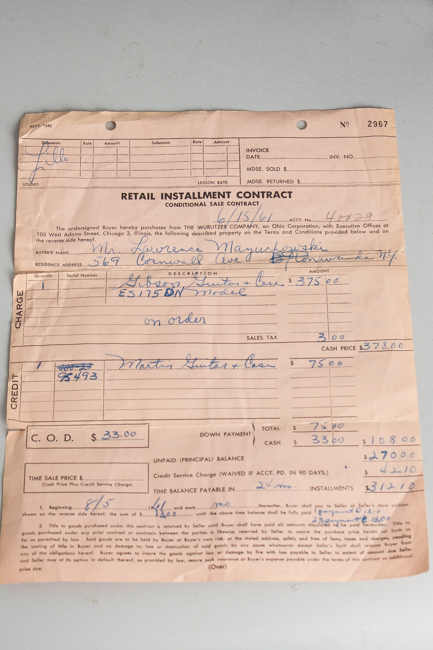 Nº 2967
Salesman Rate Amount Salesman Rate Amount
STUDIO LESSON RATE
INVOICE
DATE INV. NO.
MDSE. SOLD $
MDSE. RETURNED $
RETAIL INSTALLMENT CONTRACT
CONDITIONAL SALE CONTRACT
6/15/61 ACCT. No. 40029
The undersigned Buyer hereby purchases from THE WURLITZER COMPANY, an Ohio Corporation, with Executive Offices at
105 West Adams Street, Chicago 3, Illinois, the following described property on the Terms and Conditions provided below and on
the reverse side hereof.
BUYER'S NAME Mr. Lawrence Mazuchowski
RESIDENCE ADDRESS 569 Cornwall Ave Tonawanda N.Y.
Quantity Serial Number DESCRIPTION AMOUNT
CHARGE
1 Gibson Guitar + Case $ 375 00
ES175DN Model
on order
SALES TAX 3 00
CASH PRICE $ 373.00
CREDIT
1 95493 Martin Guitar + Case $ 75 00
C. O. D. $ 33.00
DOWN PAYMENT TOTAL $ 75 00
CASH $ 33 00 $ 108 00
UNPAID (PRINCIPAL) BALANCE $ 270 00
Credit Service Charge (WAIVED IF ACCT. PD. IN 90 DAYS.) $ 42.10
TIME SALE PRICE $
(Cash Price Plus Credit Service Charge)
TIME BALANCE PAYABLE IN 24 mo INSTALLMENTS $ 312 10
1. Beginning 8/5 61 and each mo thereafter, Buyer shall pay to Seller at Seller's store address
shown on the reverse side hereof, the sum of $ 13.00 until the time balance shall be fully paid.
2. Title to goods purchased under this contract is retained by Seller until Buyer shall have paid all amounts Title to
goods purchased under any prior contract or contracts between the parties is likewise reserved by Seller until
so far as permitted by law. Sold goods are to be held by Buyer at Buyer's own risk, at the stated address, safely and free of liens, taxes and charges, pending
the vesting of title in Buyer and no damage to, loss or destruction of sold goods by any cause whatsoever except Seller's fault shall relieve Buyer from
any of the obligations hereof. Buyer agrees to insure the goods against loss or damage by fire with loss payable to Seller to extent of amount due Seller
and Seller may at its option in default thereof, as provided by law, secure such insurance at Buyer's expense payable under the terms of this contract as additional
price due.
(Over)